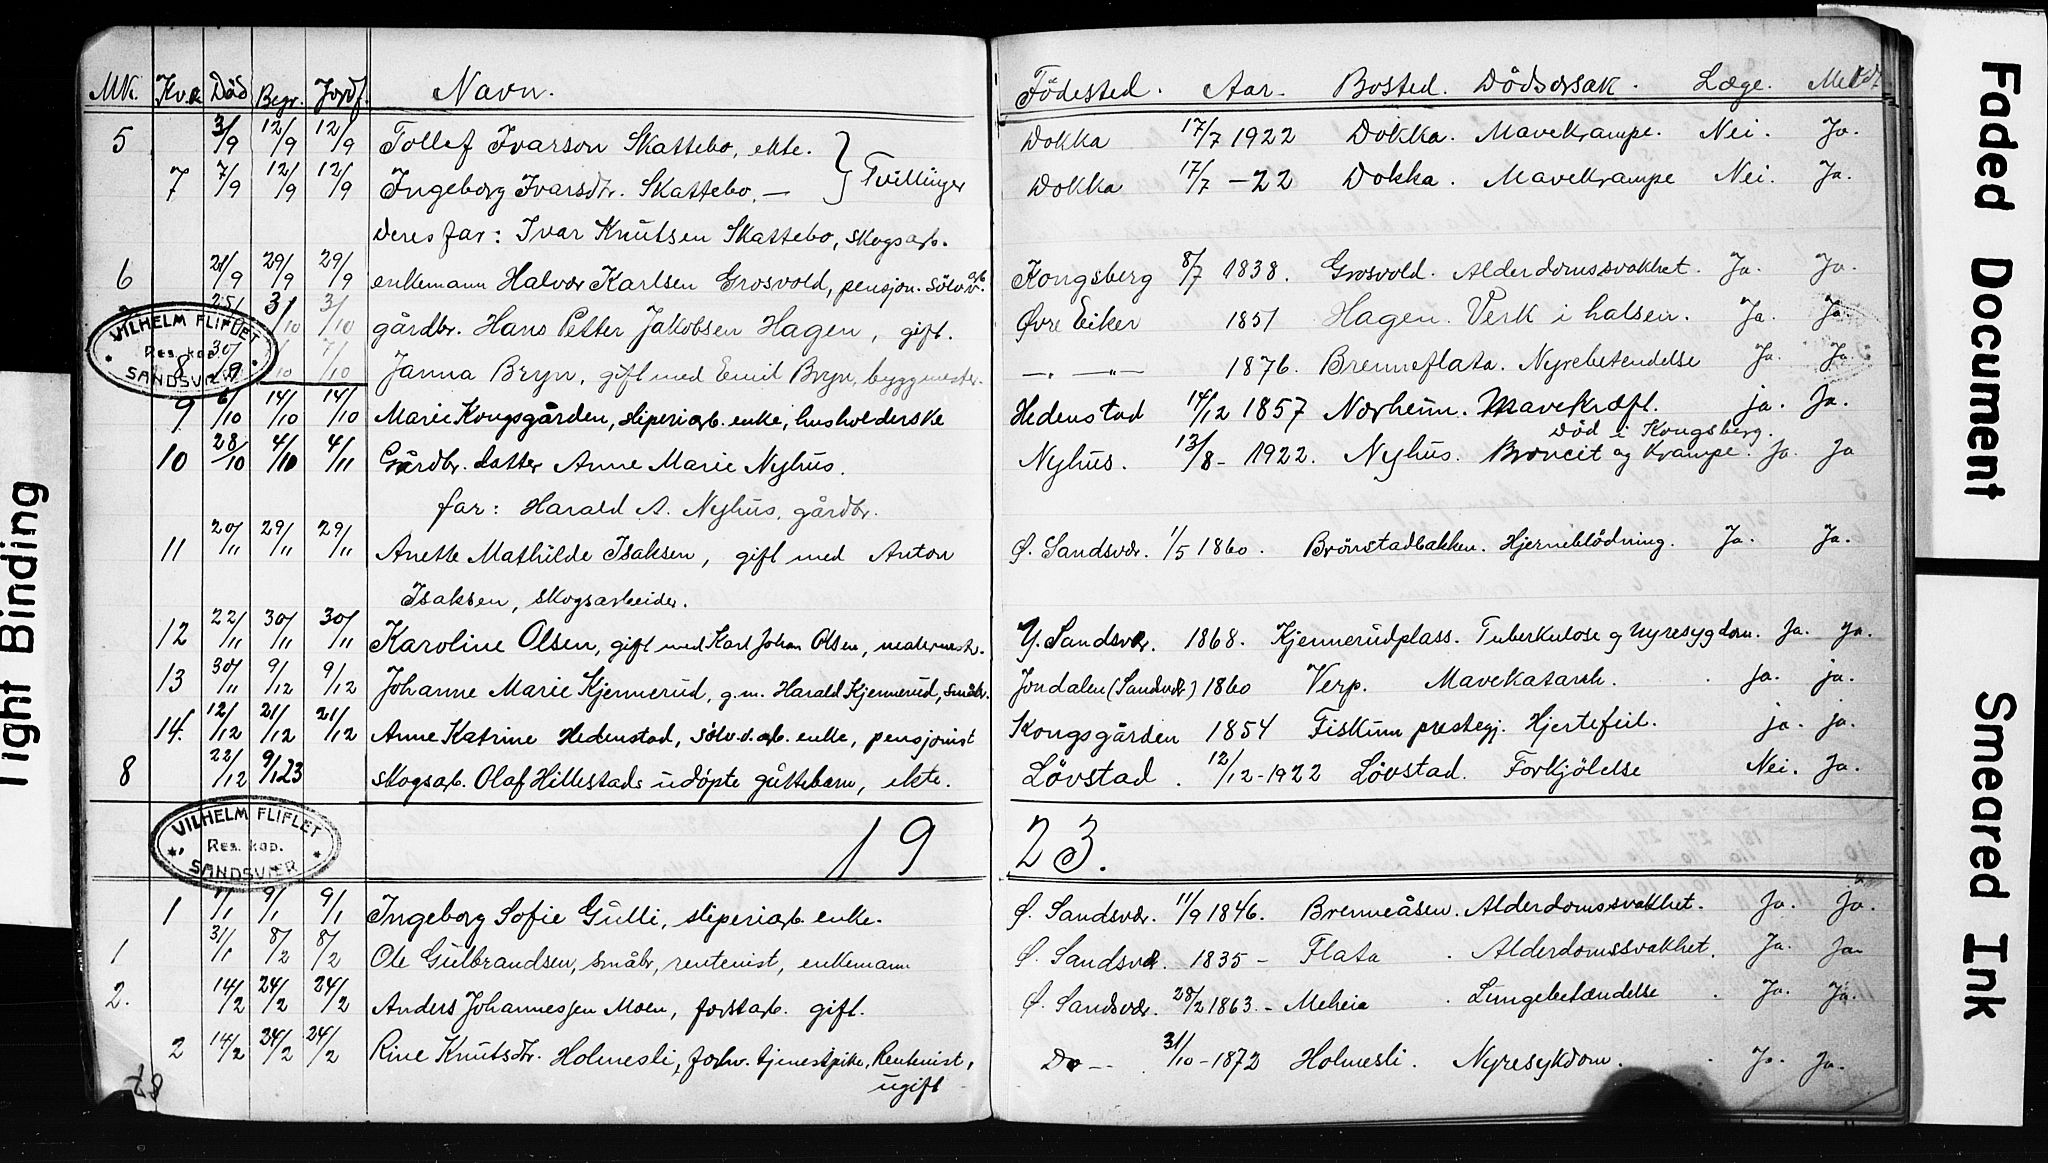 MK. Kv.k Död Begr. Jordf. Navn. Födested. Aar. Bosted. Dödsorsak. Læge. Meldt
5 3/9 12/9 12/9 Tollef Ivarson Skattebo, ekte. Dokka 17/7 1922 Dokka. Mavekrampe. Nei. Ja.
7 7/9 12/9 12/9 Ingeborg Ivarsdtr. Skattebo, — } Tvillinger Dokka 17/7 -22 Dokka. Mavekrampe Nei. Ja.
deres far: Ivar Knutsen Skattebo, skogsarb.
6 21/9 29/9 29/9 enkemann Halvor Karlsen Grosvold, pensjon. sölvv. arb. Kongsberg 8/7 1838. Grosvold. Alderdomssvakhet. Ja. Ja.
25/ 3/10 3/10 gårdbr. Hans Petter Jakobsen Hagen, gift. Øvre Eiker 1851 Hagen. Verk i halsen. Ja. Ja.
8 30/9 /10 7/10 Janna Bryn, gift med Emil Bryn, byggmester. —"— —"— 1876. Brenneflata. Nyrebetendelse Ja. Ja.
9 6/10 14/10 14/10 Marie Kongsgården, sliperiarb. enke, husholderske Hedenstad 14/12 1857 Norheim. Mavekræft. ja. Ja.
död i Kongsberg.
10 28/10 4/10 4/11 Gårdbr. datter Anne Marie Nyhus. Nyhus. 13/8- 1922. Nyhus. Broncit og Krampe. Ja. Ja
far: Harald A. Nyhus, gårdbr.
11 20/11 29/11 29/11 Anette Mathilde Isaksen, gift med Anton Ø. Sandsvær. 1/5 1860. Brönstadbakken. Hjerneblödning. Ja. Ja.
Isaksen, skogsarbeider.
12 22/11 30/11 30/11 Karoline Olsen, gift med Karl Johan Olsen, malermestr. Y. Sandsvær. 1868. Kjennerudplass. Tuberkulose og nyresygdom. Ja. Ja.
13 30/11 9/12 9/12 Johanne Marie Kjennerud, g. m. Harald Kjennerud, småbr. Jondalen (Sandsvær) 1860 Verp. Mavekatarrh. ja. ja.
14. 12/12 21/12 21/12 Anne Katrine Hedenstad, sölv.v.arb. enke, pensjonist Kongsgården 1854 Fiskum prestegj. Hjertefeil. ja. ja.
8 22/12 9/1 23 skogsarb. Olaf Hillestads udöpte guttebarn, ekte. Lövstad. 12/12-1922 Lövstad. Forkjölelse Nei. Ja.
VILHELM FLIFLET
Res. kap.
SANDSVÆR
VILHELM FLIFLET
Res. kap.
SANDSVÆR
1923.
1 1/1 9/1 9/1 Ingeborg Sofie Gulli, sliperiarb. enke. Ø. Sandsvær. 11/9 1846. Brenneåsen. Alderdomssvakhet. Ja. Ja.
1 31/1 8/2 8/2 Ole Gulbrandsen, småbr, rentenist, enkemann Ø. Sandsvær. 1835 - Flata. Alderdomssvakhet. Ja. Ja.
2. 14/2 24/2 24/2 Anders Johannessen Moen, forstarb. gift. Ø. Sandsvær. 28/2 1863. - Meheia. Lungebetændelse. Ja. Ja.
2 14/2 24/2 24/2 Rine Knutsdtr. Holmesli, forhv. tjenestpike, Rentenist, Do - 31/10-1872 Holmesli. Nyresykdom. Ja. Ja.
ugift
Tight Binding
Faded Document
Smeared Ink